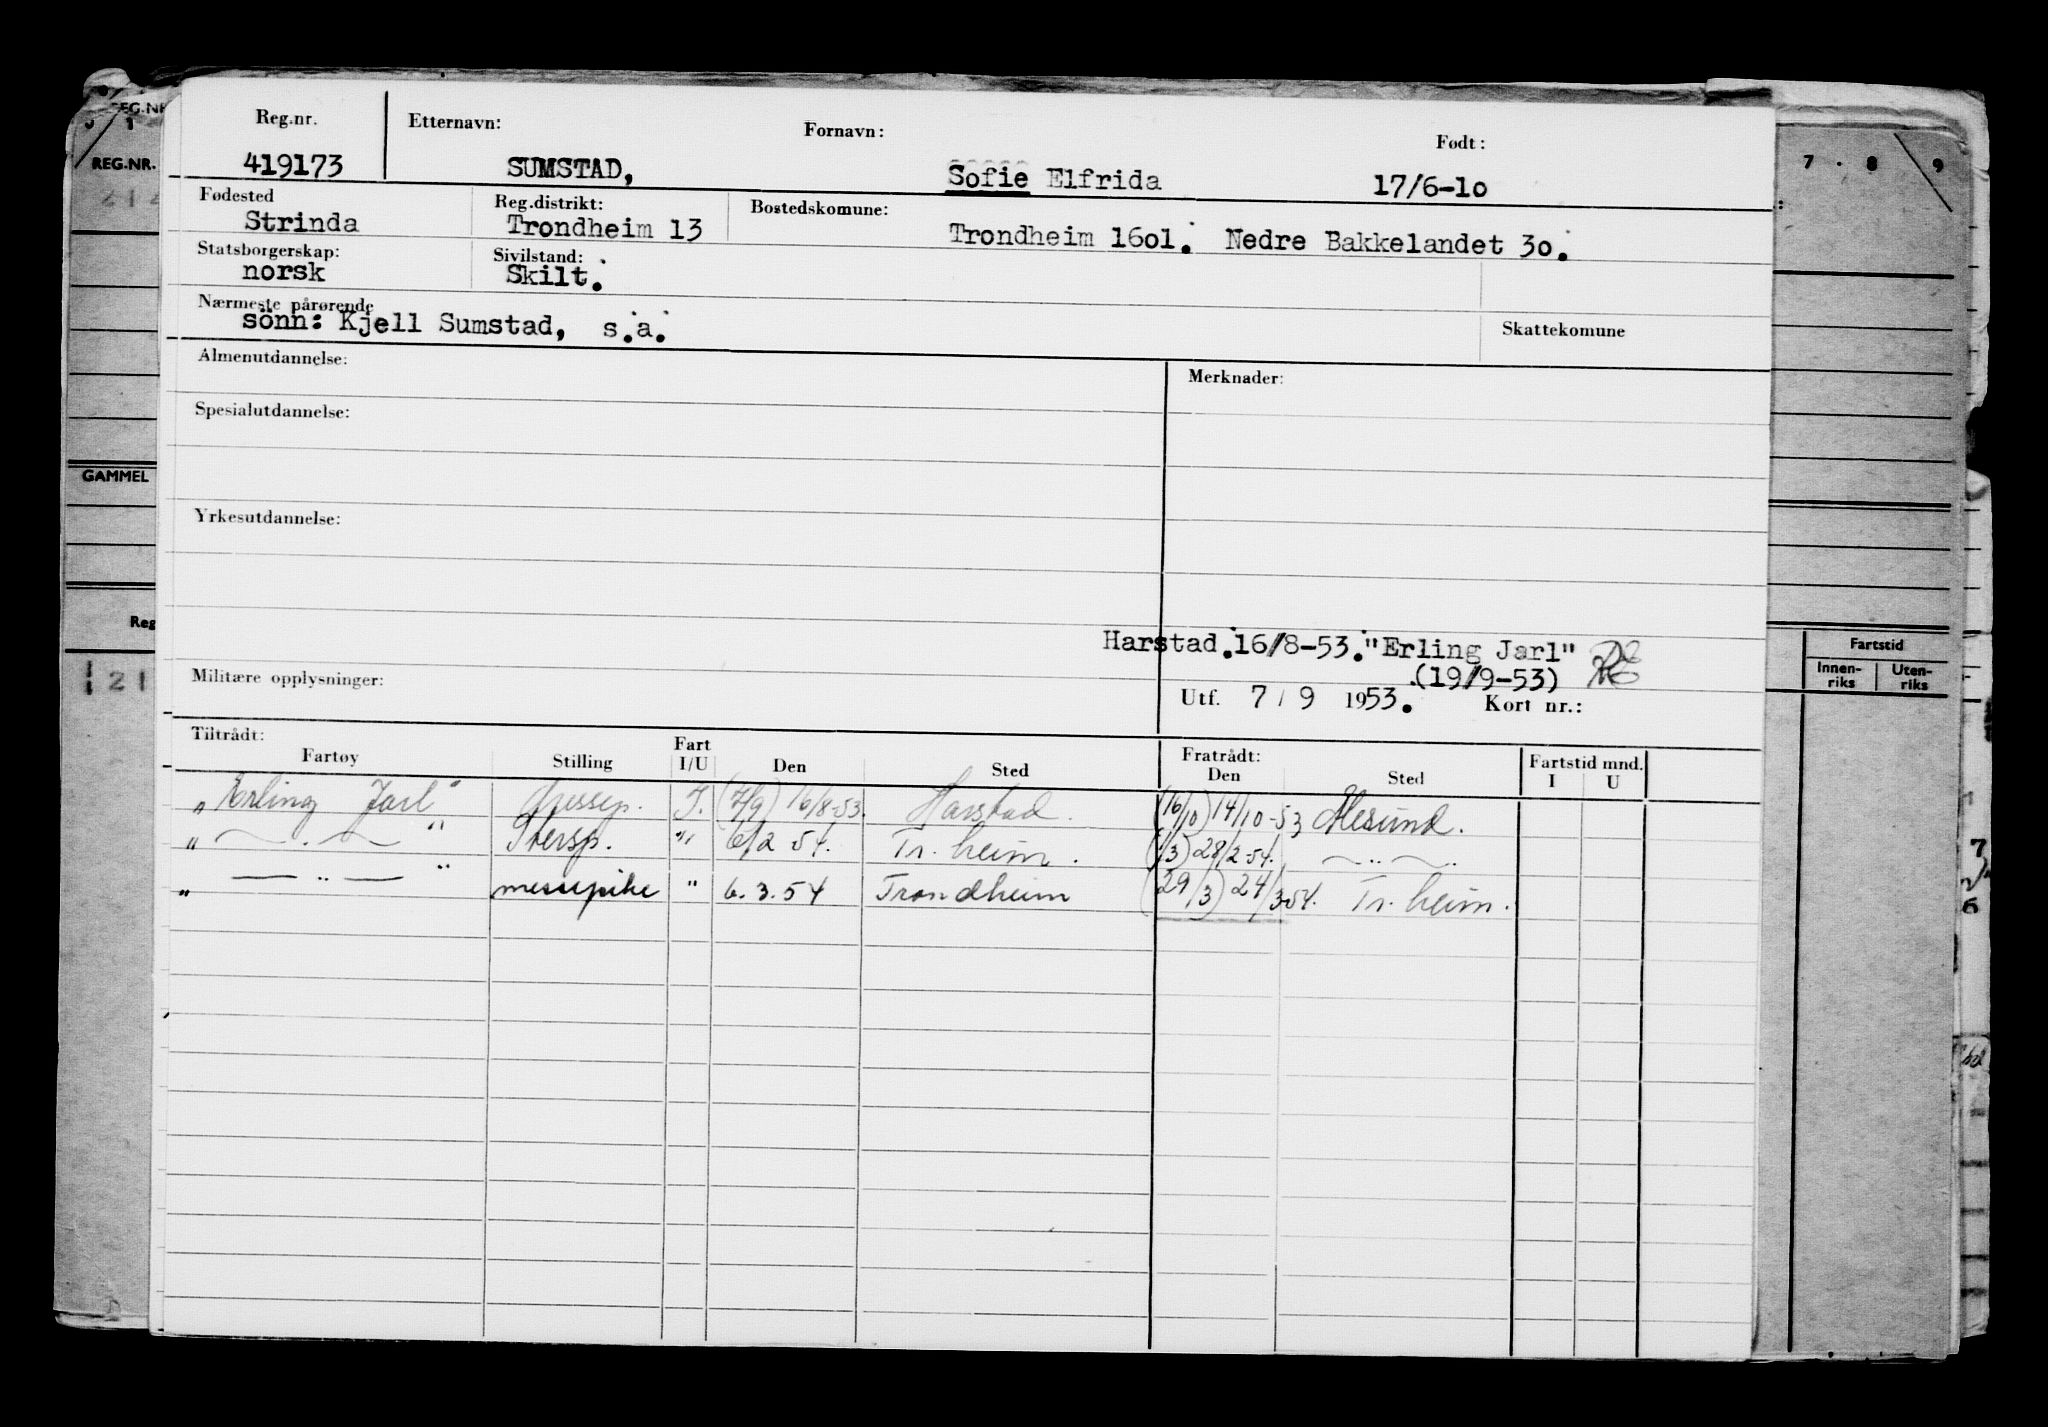 Reg.nr. Etternavn: Fornavn: Født:
419173 SUMSTAD, Sofie Elfrida 17/6-10
Fødested Reg.distrikt: Bostedskomune:
Strinda Trondheim 13 Trondheim 16ol. Nedre Bakkelandet 3o.
Statsborgerskap: Sivilstand:
norsk Skilt.
Nærmeste pårørende Skattekomune
sönn: Kjell Sumstad, s.a.
Almenutdannelse: Merknader:
Spesialutdannelse:
Yrkesutdannelse:
Harstad.16/8-53."Erling Jarl"
.(19/9-53)
Militære opplysninger: Utf. 7 / 9 1953. Kort nr.:
Tiltrådt: Fratrådt: Fartstid mnd.
Fartøy Stilling Fart I/U Den Sted Den Sted I U
"Erling Jarl" Messep. I. (7/9) 16/8-53. Harstad. (16/10) 14/10-53 Ålesund.
" — . — " " 6/2 54. Tr. heim. 28/2 54. — " —.
" — " — " messepike " 6.3.54 Trondheim (29/3) 24/3-54. Tr. heim.
REG.NR.
REG.NR.
GAMMEL
Reg
7 . 8 9
Fartstid
Innen-riks Uten-riks